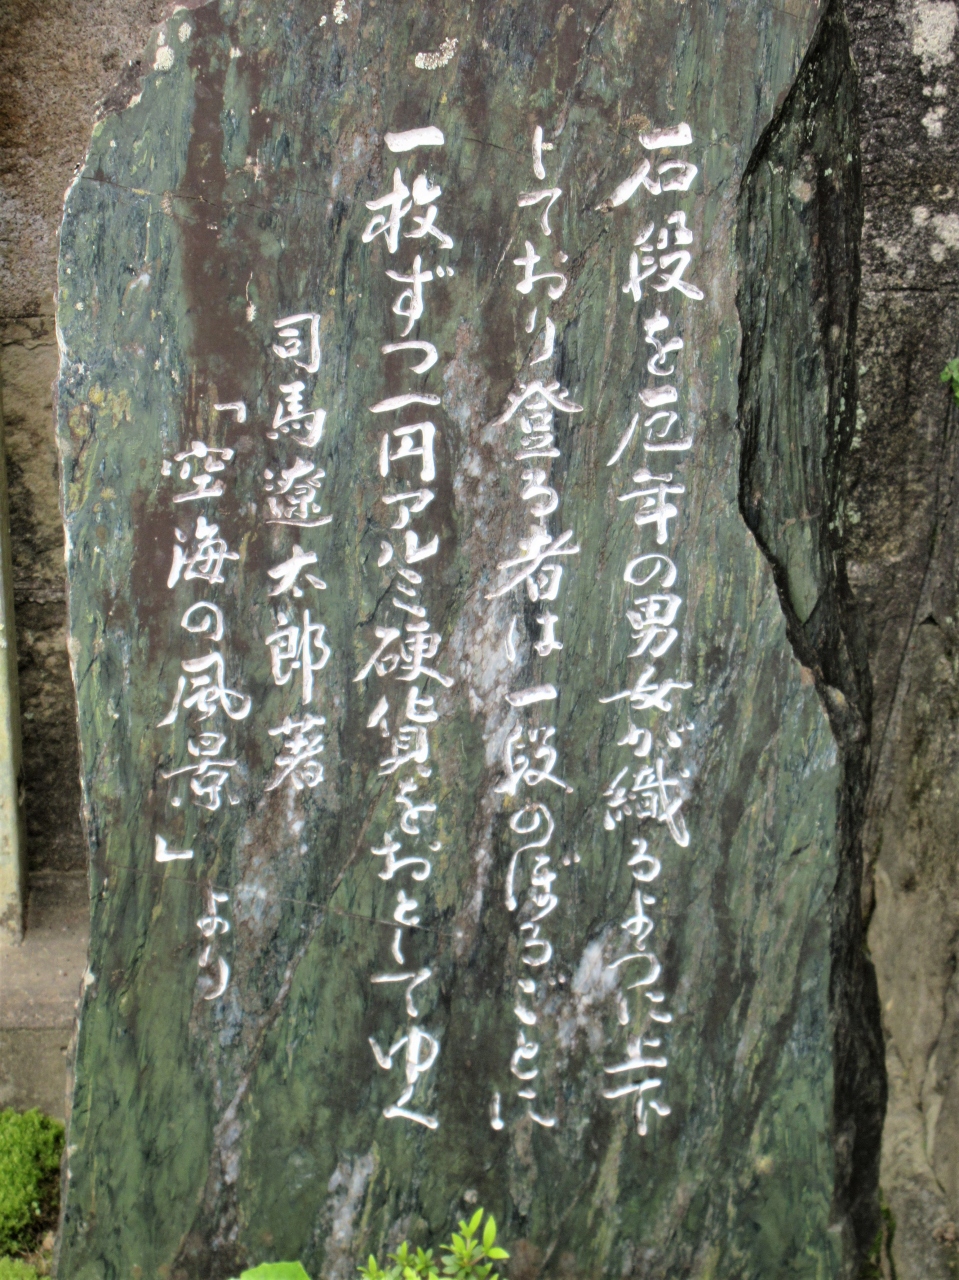 石段を厄年の男女が織るように上下
しており登る者は一段のぼるごとに
一枚ずつ一円アルミ硬貨をおとしてゆく
司馬遼太郎著
「空海の風景」より